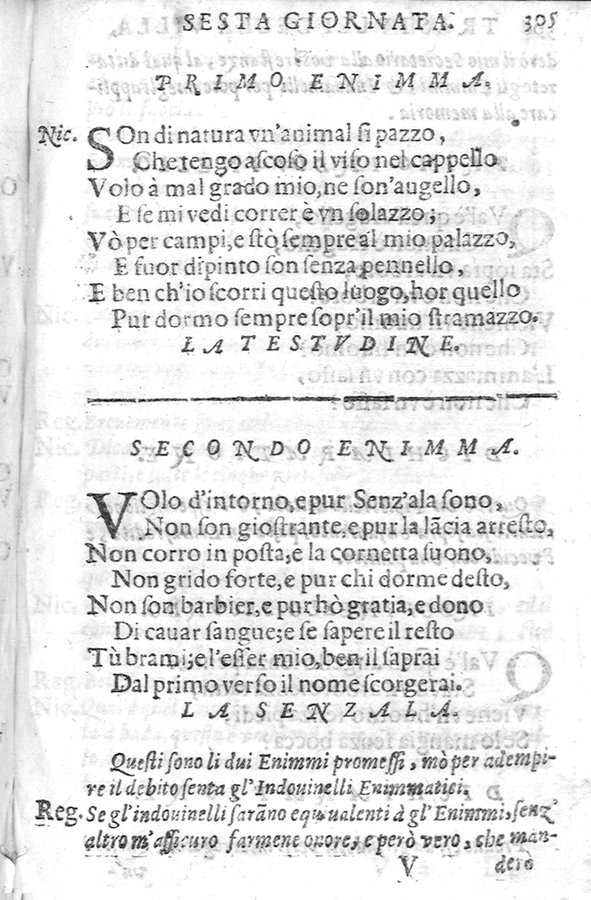 SESTA GIORNATA. 305
PRIMO ENIMMA.
Nic. SOn di natura vn'animal si pazzo,
Che tengo ascoso il viso nel cappello
Volo à mal grado mio, ne son'augello,
E se mi vedi correr è vn solazzo;
Vò per campi, e stò sempre al mio palazzo,
E fuor dipinto son senza pennello,
E ben ch'io scorri questo luogo, hor quello
Pur dormo sempre sopr'il mio stramazzo.
LA TESTVDINE.
SECONDO ENIMMA.
VOlo d'intorno, e pur Senz'ala sono,
Non son giostrante, e pur la lãcia arresto,
Non corro in posta; e la cornetta suono,
Non grido forte, e pur chi dorme desto,
Non son barbier, e pur hò gratia, e dono
Di cauar sangue; e se sapere il resto
Tù brami; e l'esser mio, ben il saprai
Dal primo verso il nome scorgerai.
LA SENZALA.
Questi sono li dui Enimmi promessi, mò per adempi-
re il debito senta gl'Indouinelli Enimmatici.
Reg. Se gl'indouinelli sarãno equiualenti à gl'Enimmi, senz'
altro m'assicuro farmene onore; e però vero, che man-
V dero